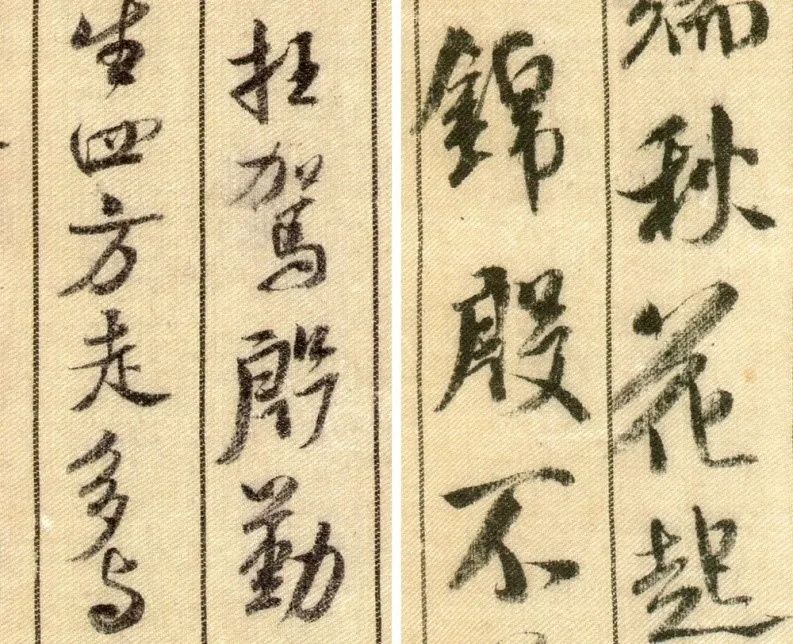 端秋花起
錦殷不
枉駕殷勤
生四方走多与